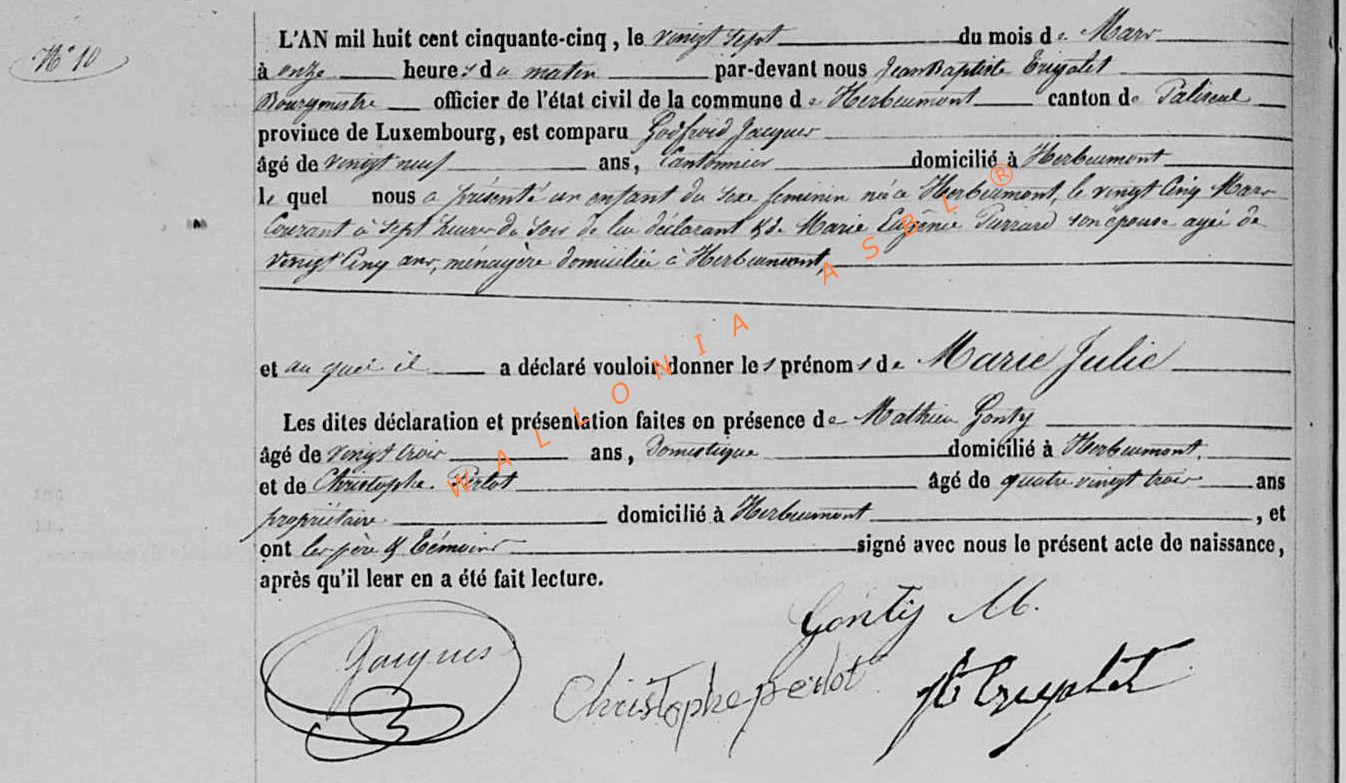 N° 10
L'AN mil huit cent cinquante-cinq, le vingt sept du mois de Mars
à onze heures du matin par-devant nous Jean Baptiste
Bourgmestre officier de l'état civil de la commune de Herbeumont canton de Paliseul
province de Luxembourg, est comparu Godfroid Jacques
âgé de vingt neuf ans, Cantonnier domicilié à Herbeumont
le quel nous a présenté un enfant du sexe feminin né à Herbeumont, le vingt Cinq Mars
Courant à sept heures du soir de lui déclarant & de Marie Eugénie son épouse agée de
vingt Cinq ans, ménagère domiciliée à Herbeumont,
et au quel il a déclaré vouloir donner les prénoms de Marie Julie
Les dites déclaration et présentation faites en présence de Mathieu Gonty
âgé de vingt trois ans, Domestique domicilié à Herbeumont
et de Christophe Perlot âgé de quatre vingt trois ans
propriétaire domicilié à Herbeumont, et
ont les père & Témoins signé avec nous le présent acte de naissance,
après qu'il leur en a été fait lecture.
Gonty M.
Jacques
Christophe perlot
WALLONIA ASBL ®